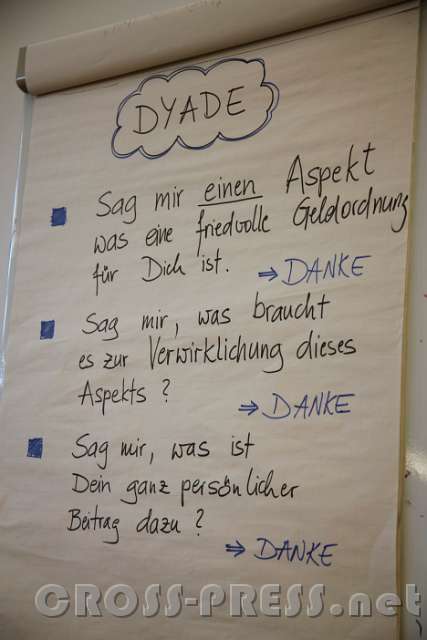 DYADE
Sag mir einen Aspekt
was eine friedvolle Geldordnung
für Dich ist.
⇒ DANKE
Sag mir, was braucht
es zur Verwirklichung dieses
Aspekts ?
⇒ DANKE
Sag mir, was ist
Dein ganz persönlicher
Beitrag dazu ?
⇒ DANKE
CROSS-PRESS.net